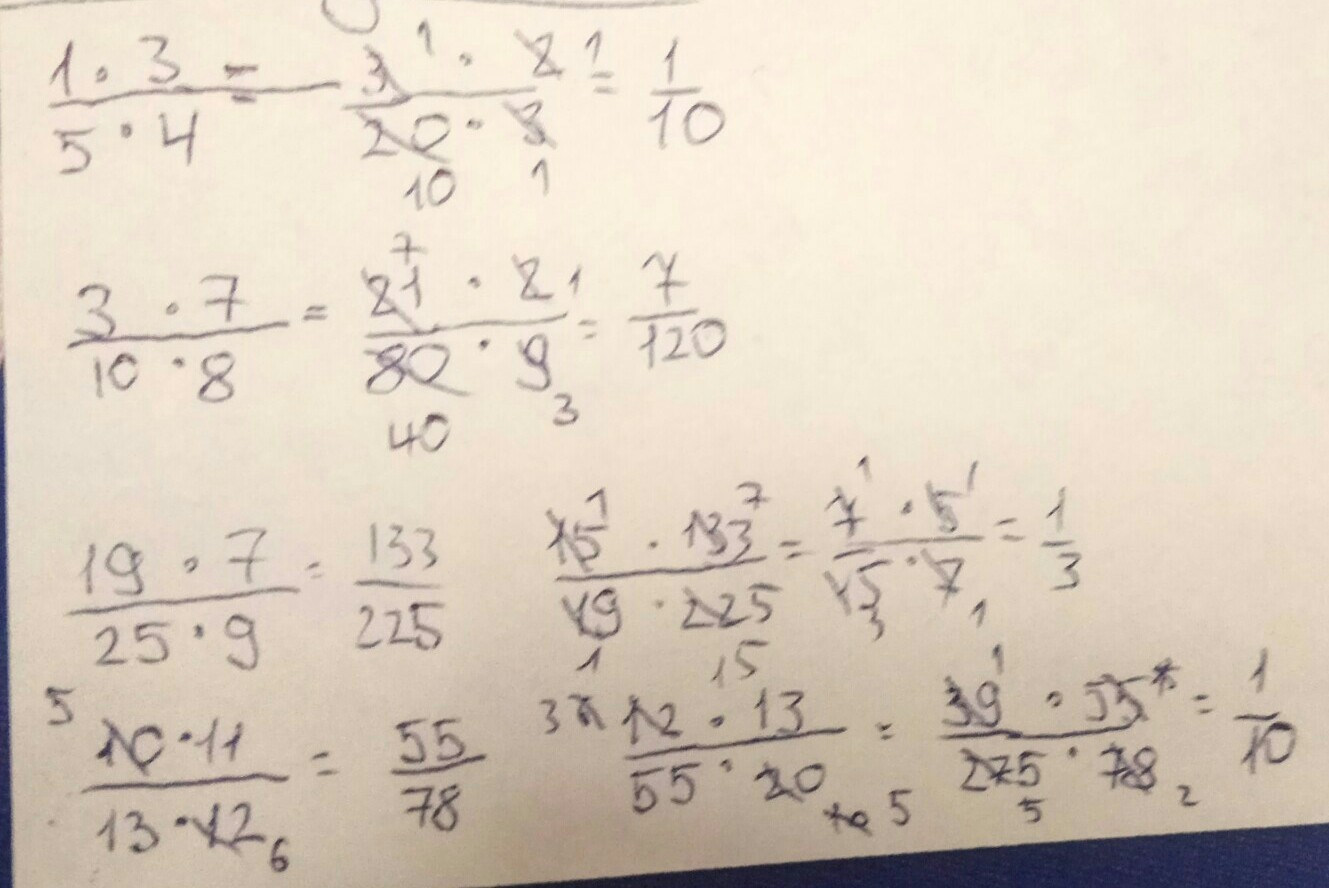 1 · 3 / 5 · 4 = 3 1 · 2 1 / 20 10 · 3 1 = 1/10
3 · 7 / 10 · 8 = 21 7 · 2 1 / 80 40 · 9 3 = 7/120
19 · 7 / 25 · 9 = 133/225   15 1 · 133 7 / 19 1 · 225 15 = 7 1 · 5 1 / 15 3 · 7 1 = 1/3
5 10 · 11 / 13 · 12 6 = 55/78   3 12 · 13 / 55 · 20 5 = 39 1 · 55 / 275 5 · 78 2 = 1/10